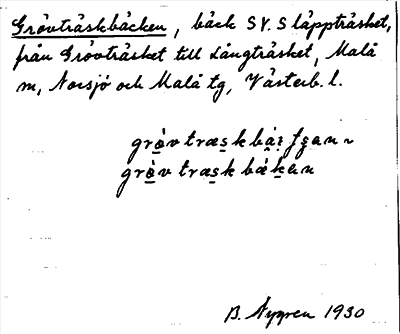 Grövträskbäcken, bäck SV. Släppträsket,
från Grövträsket till Långträsket, Malå
m, Norsjö och Malå tg, Västerb. l.
gròv træskbǽ
gròv træsk bǽkan
B. Nygren 1930